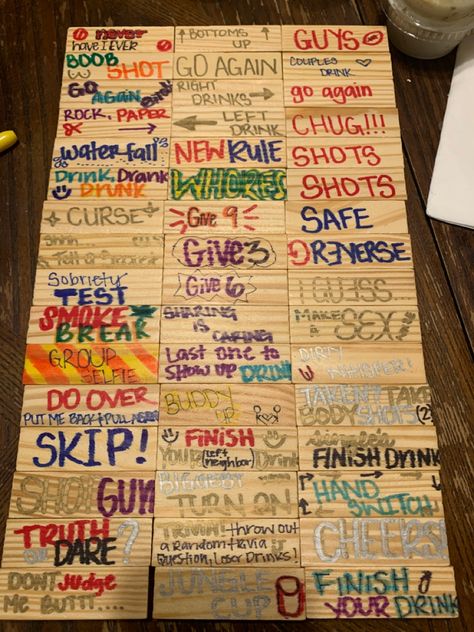 never
have I EVER
↑ BOTTOMS ↑
UP
GUYS
BOOB
SHOT
GO AGAIN
COUPLES
DRINK
GO
AGAIN
RIGHT
DRINKS →
go again
ROCK, PAPER
← LEFT
DRINK
CHUG!!!
waterfall
NEW RULE
SHOTS
Drink, Drank
DRUNK
WHORES
SHOTS
CURSE
Give 9
SAFE
Shhh
Tell a Secret
Give 3
REVERSE
Sobriety
TEST
Give 6
I GUESS...
SMOKE
BREAK
SHARING
IS
CARING
MAKE
A SEX
GROUP
SELFIE
Last one to
SHOW UP DRINK
DIRTY
WHISPER!
DO OVER
PUT ME BACK & PULL AGAIN
BUDDY
UP
TAKE
BODY SHOTS (2)
SKIP!
FINISH
YOUR (Left neighbor) Drink
FINISH DRINK
SHOT GUN
TURN ON
HAND
SWITCH
TRUTH
OR DARE?
TRIVIA! throw out
a Random trivia
Question, Loser Drinks!
CHEERS
DON'T Judge
ME BUTT....
JUNGLE
CUP
FINISH
YOUR DRINK